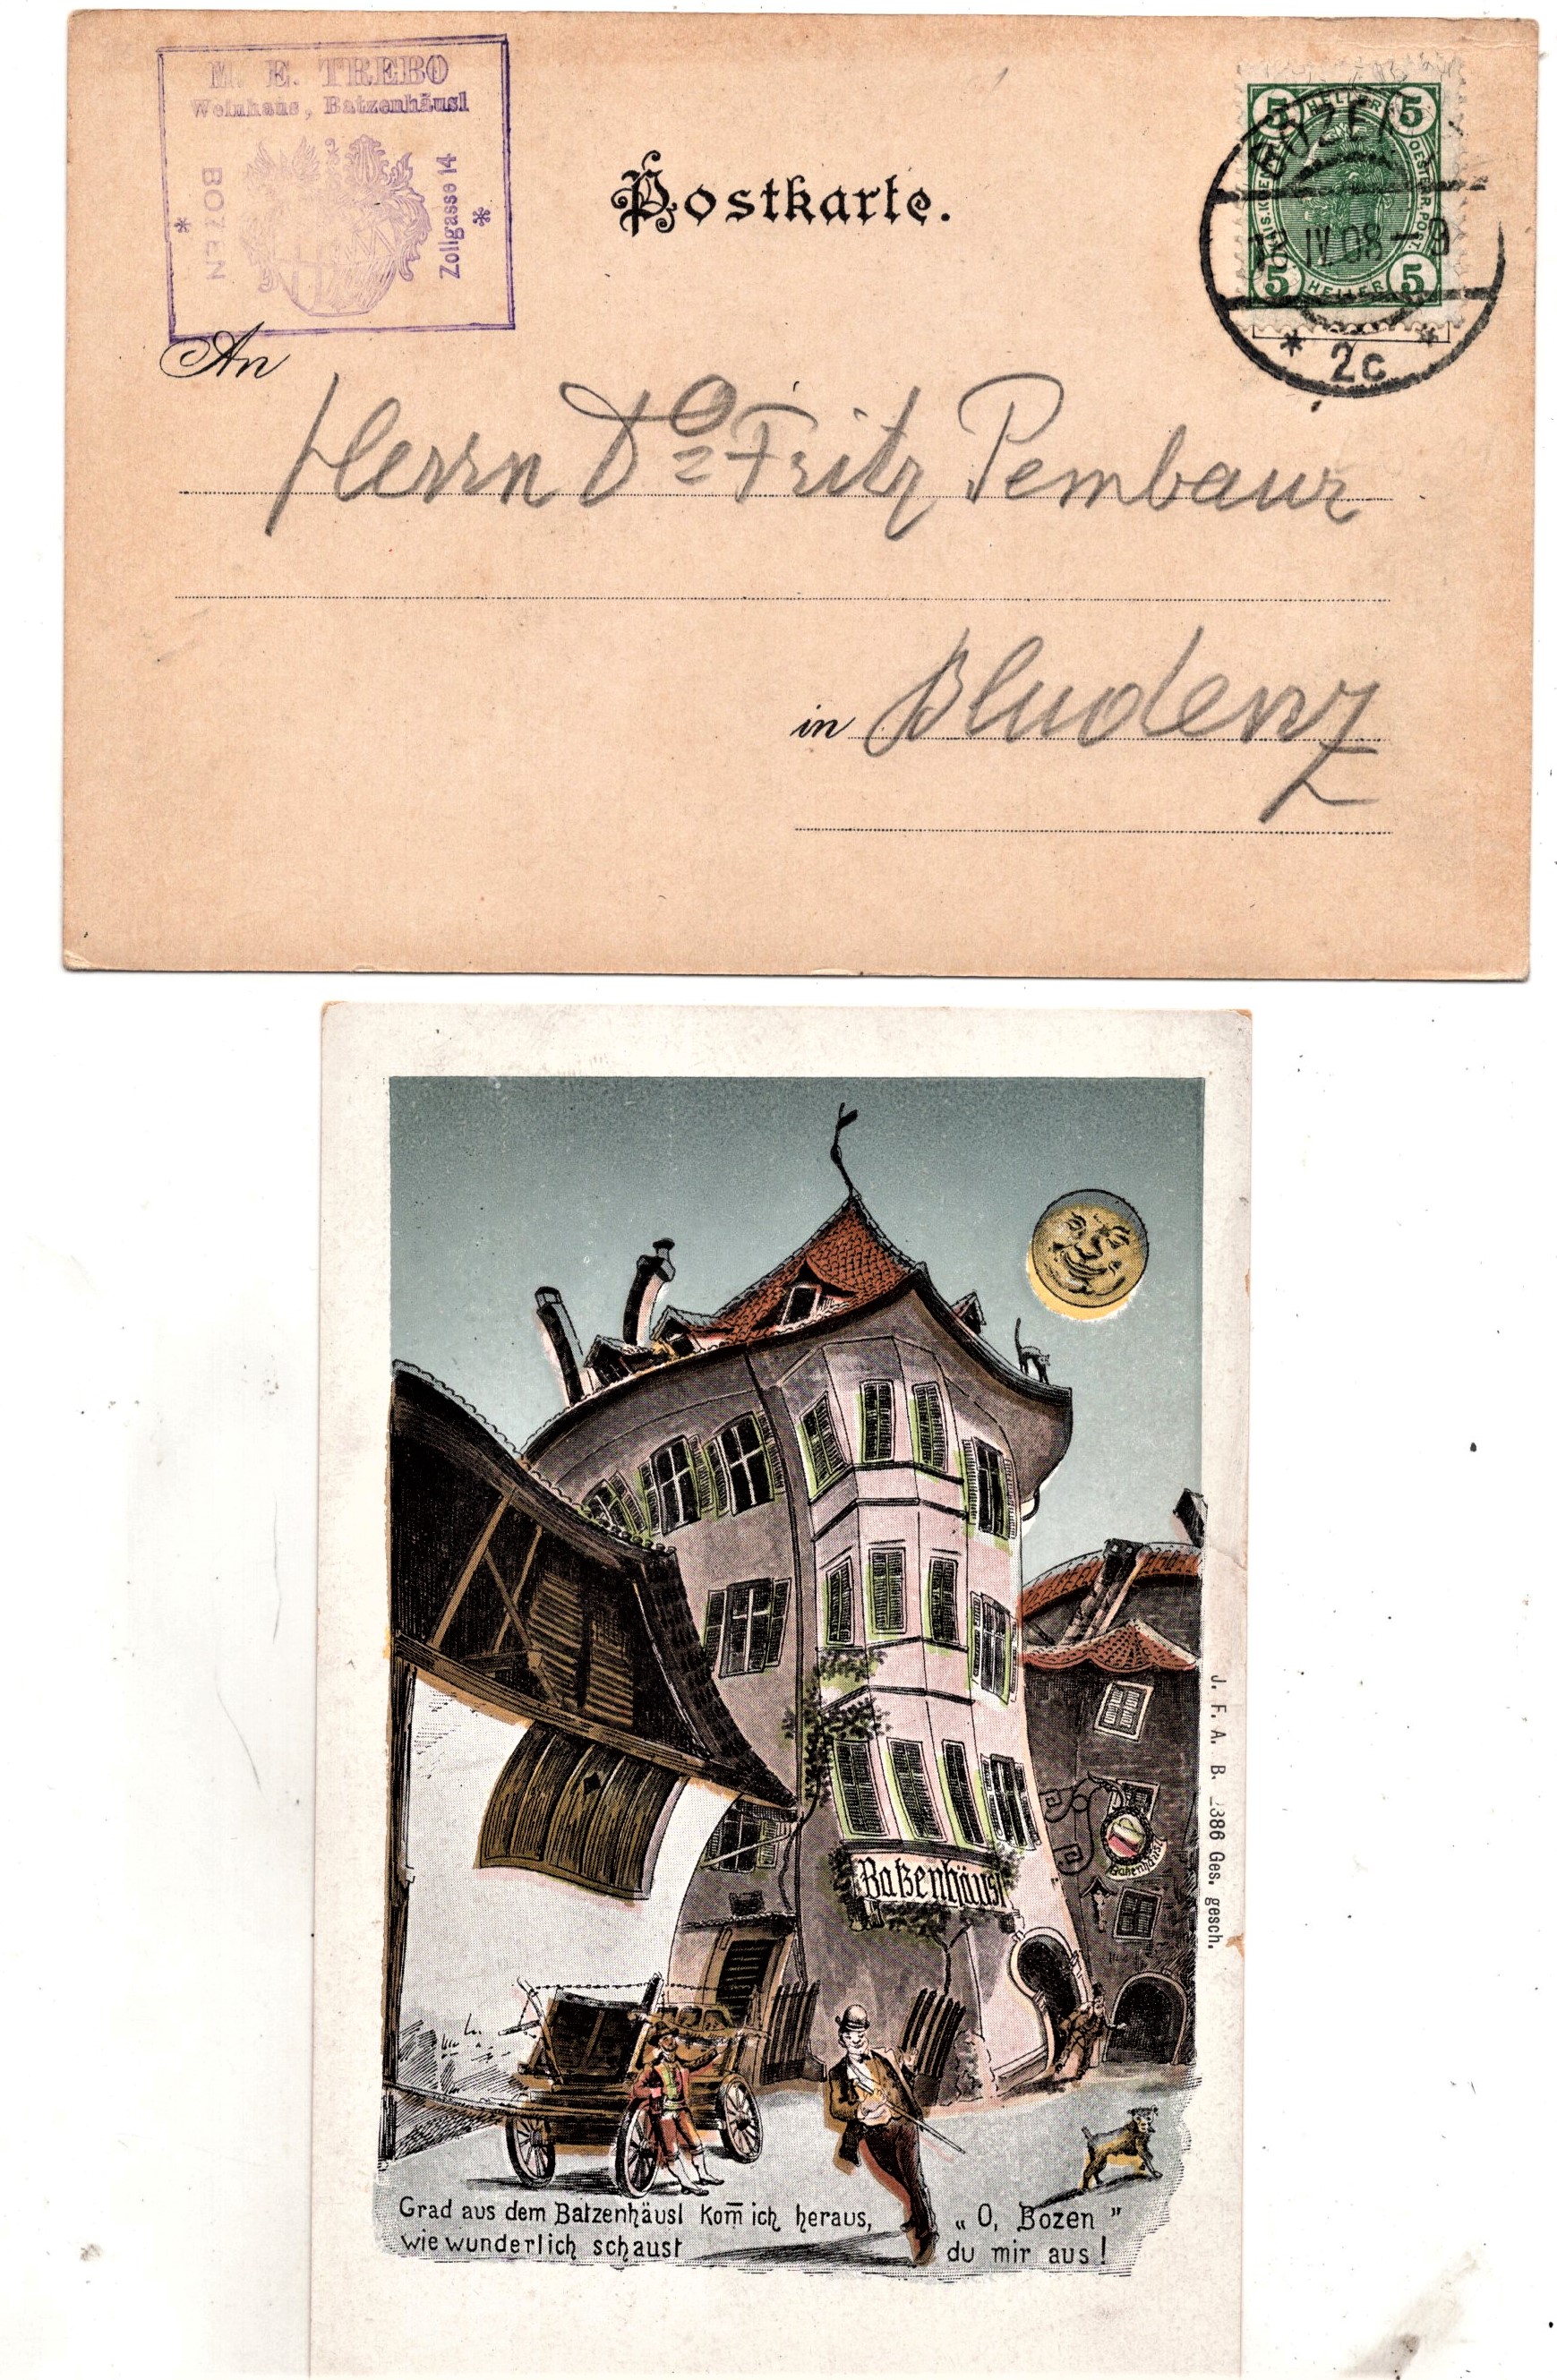 M. E. TREBO
Weinhaus, Batzenhäusl
* BOZEN
Zollgasse 14 *
Postkarte.
5 HELLER 5
KAIS. KOEN. OESTERR. POST.
5 HELLER 5
BOZEN
IV. 08
* 2c *
An
Herrn Dr Fritz Pembaur
in Bludenz
Batzenhäusl
Batzenhäusl
J. F. A. B. 2386 Ges. gesch.
Grad aus dem Batzenhäusl kom̄ ich heraus, „O, Bozen”
wie wunderlich schaust du mir aus!